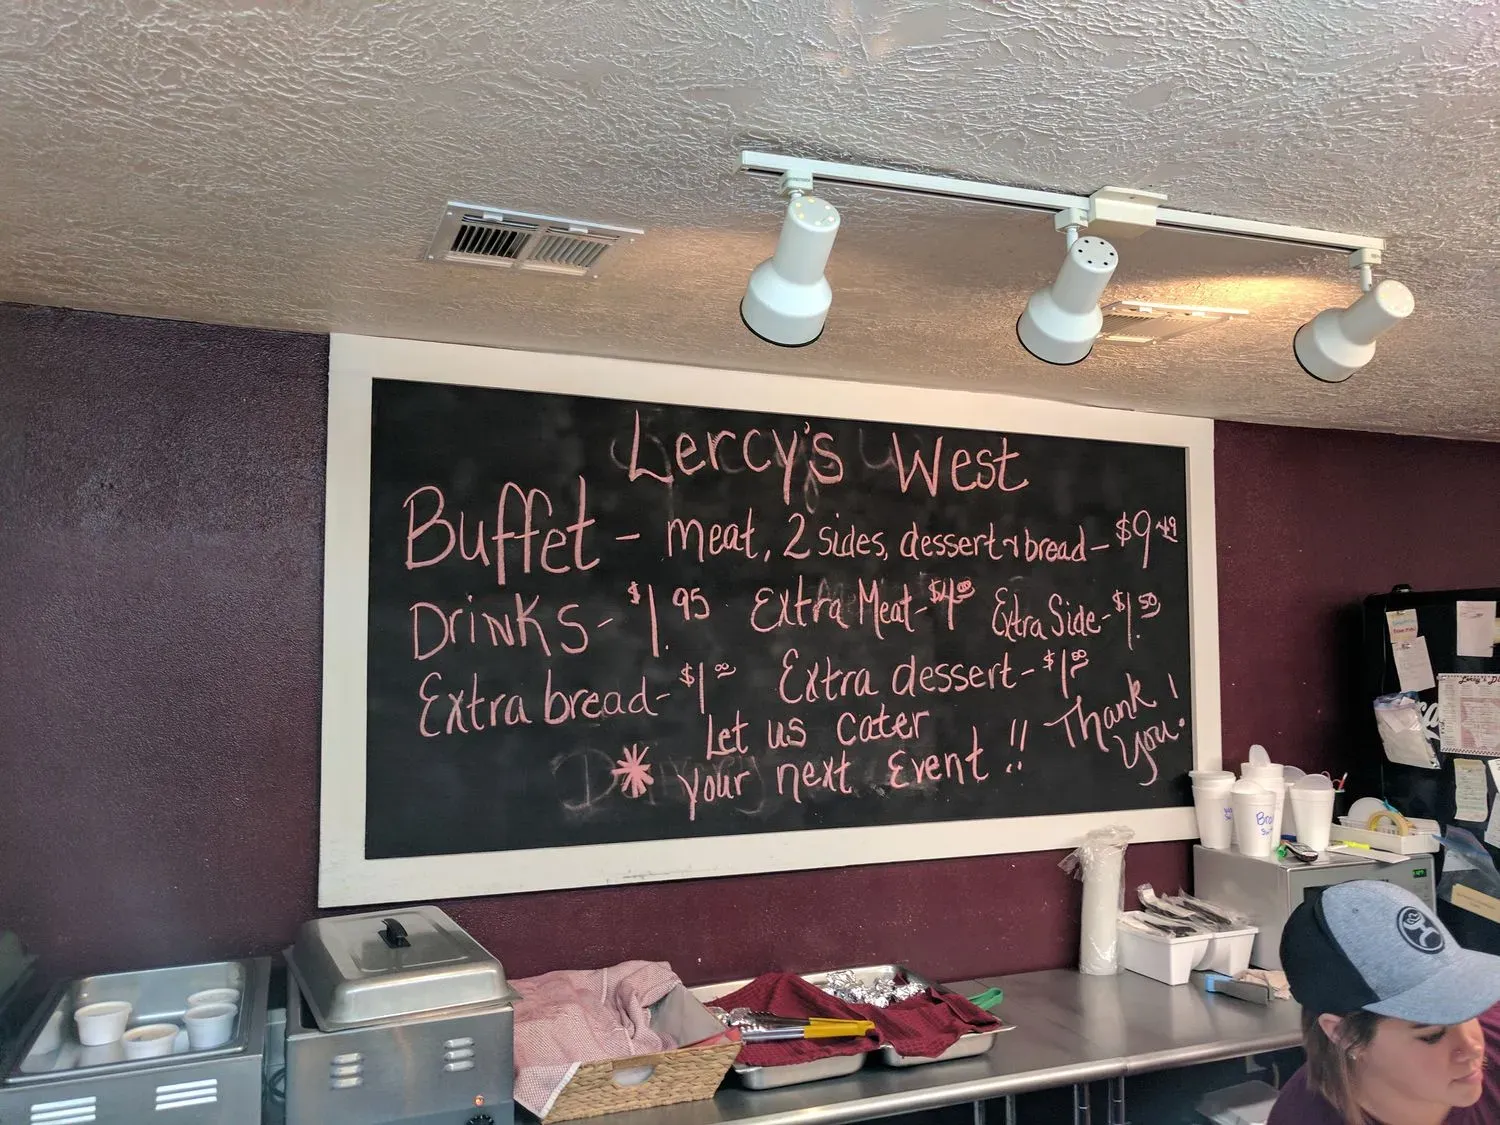 Lercy's West
Buffet - meat, 2 sides, dessert & bread - $9.49
Drinks - $1.95 Extra Meat - $4.00 Extra Side - $1.50
Extra bread - $1.00 Extra dessert - $1.00
Let us cater
* your next Event!! Thank You!